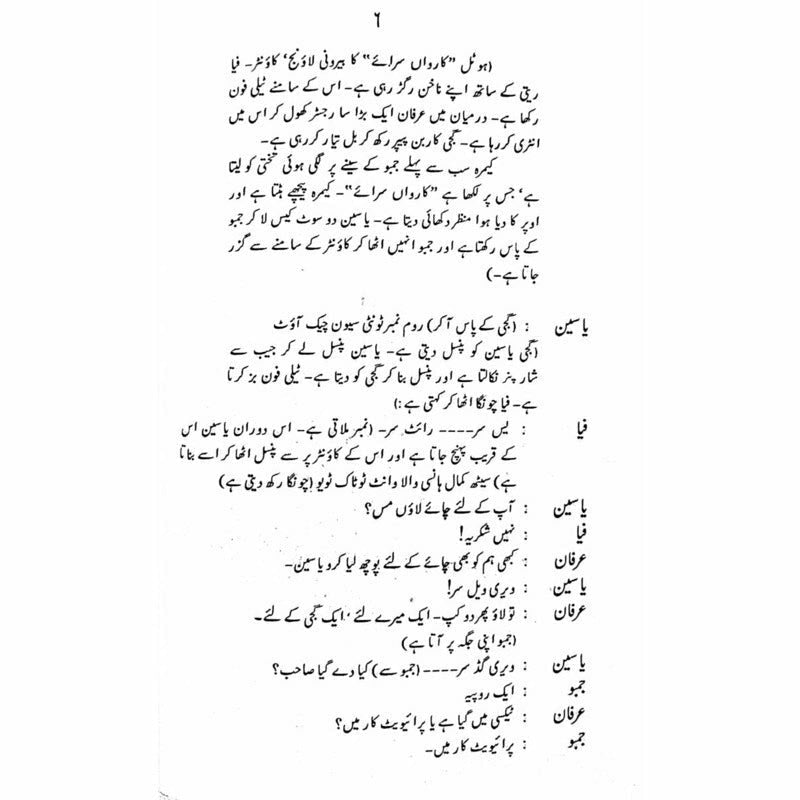 ۶
(ہوٹل "کارواں سرائے" کا بیرونی لاؤنج، کاؤنٹر۔ فیا
ریتی کے ساتھ اپنے ناخن رگڑ رہی ہے۔ اس کے سامنے ٹیلی فون
رکھا ہے۔ درمیان میں عرفان ایک بڑا سا رجسٹر کھول کر اس میں
انٹری کر رہا ہے۔ گجی کاربن پیپر رکھ کر بل تیار کر رہی ہے۔
کیمرہ سب سے پہلے جمبو کے سینے پر لگی ہوئی تختی کو لیتا
ہے، جس پر لکھا ہے "کارواں سرائے"۔ کیمرہ پیچھے ہٹتا ہے اور
اوپر کا دیا ہوا منظر دکھائی دیتا ہے۔ یاسین دو سوٹ کیس لا کر جمبو
کے پاس رکھتا ہے اور جمبو انہیں اٹھا کر کاؤنٹر کے سامنے سے گزر
جاتا ہے۔)
یاسین : (گجی کے پاس آ کر) روم نمبر ٹونٹی سیون چیک آؤٹ
(گجی یاسین کو پنسل دیتی ہے۔ یاسین پنسل لے کر جیب سے
شارپنر نکالتا ہے اور پنسل بنا کر گجی کو دیتا ہے۔ ٹیلی فون بز کرتا
ہے۔ فیا چونگا اٹھا کر کہتی ہے:)
فیا : یس سر---- رائٹ سر۔ (نمبر ملاتی ہے۔ اس دوران یاسین اس
کے قریب پہنچ جاتا ہے اور اس کے کاؤنٹر پر سے پنسل اٹھا کر اسے بناتا
ہے) سیٹھ کمال ہانسی والا وانٹ ٹو ٹاک ٹو یو (چونگا رکھ دیتی ہے)
یاسین : آپ کے لئے چائے لاؤں مس؟
فیا : نہیں شکریہ!
عرفان : کبھی ہم کو بھی چائے کے لئے پوچھ لیا کرو یاسین۔
یاسین : ویری ویل سر!
عرفان : تو لاؤ پھر دو کپ۔ ایک میرے لئے، ایک گجی کے لئے۔
(جمبو اپنی جگہ پر آتا ہے)
یاسین : ویری گڈ سر---- (جمبو سے) کیا دے گیا صاحب؟
جمبو : ایک روپیہ
عرفان : ٹیکسی میں گیا ہے یا پرائیویٹ کار میں؟
جمبو : پرائیویٹ کار میں۔